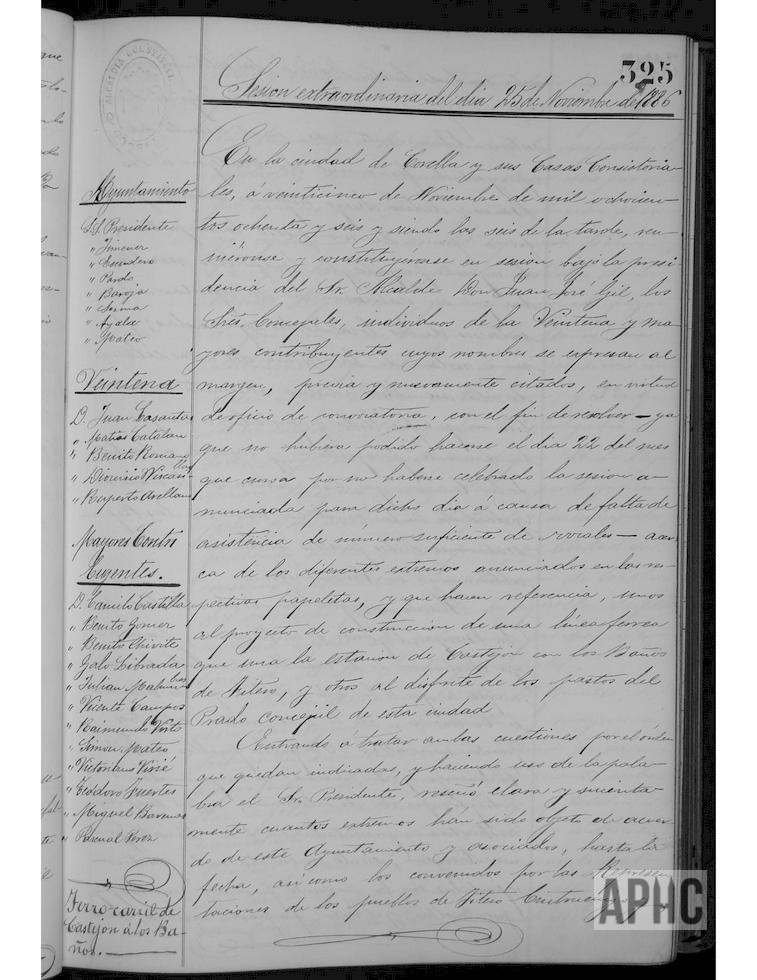 325
Sesion extraordinaria del dia 25 de Noviembre de 1886
ALCALDIA CONSTITUCI
CORELLA
Ayuntamiento
S.S. Presidente
" Jimenez
" Escudero
" Pardo
" Baroja
" Serma
" Ayala
" Mateo
Veintena
D. Juan
" Matias Catalan
" Benito Romano
" Dionisio
" Ruperto Arellano
Mayores Contri
buyentes.
D. Camilo Castilla
" Benito Gomez
" Benito Chivite
" Galo Librada
" Julian Malum bres
" Vicente Campos
" Raimundo Virto
" Simon Mateo
" Victoriano Virié
" Teodoro Fuertes
" Miguel
" Pascual Perez
Ferro-carril de
Castejón á los Ba-
ños.
En la ciudad de Corella y sus Casas Consistoria-
les, á veinticinco de Noviembre de mil ochocien-
tos ochenta y seis y siendo las seis de la tarde, reu-
niéronse y constituyeronse en sesion bajo la presi-
dencia del Sr. Alcalde Don Juan José Gil, los
Sres. Concejales, individuos de la Veintena y ma-
yores contribuyentes cuyos nombres se espresan al
margen, previa y nuevamente citados, en virtud
de oficio de convocatoria, con el fin de resolver - ya
que no hubiera podido hacerse el dia 22 del mes
que cursa por no haberse celebrado la sesion a-
nunciada para dicho dia á causa de falta de
asistencia de número suficiente de vocales - acer-
ca de los diferentes extremos anunciados en las res-
pectivas papeletas, y que hacen referencia, unos
al proyecto de construccion de una linea ferrea
que una la estacion de Castejón con los Baños
de Fitero, y otros al disfrute de los pastos del
Prado concejil de esta ciudad
Entrando á tratar ambas cuestiones por el órden
que quedan indicadas, y haciendo uso de la pala-
bra el Sr. Presidente, reseñó clara y sucinta-
mente cuantos extremos hán sido objeto de acuer-
do de este Ayuntamiento y asociados, hasta la
fecha, asi como los convenidos por las Represen
taciones de los pueblos de Fitero Cintruenigo
APHC